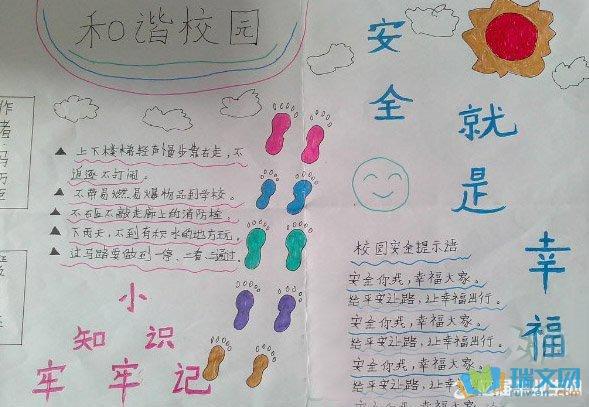 和谐校园
作
者
▲ 上下楼梯轻声慢步靠右走，不
追逐不打闹。
▲ 不带易燃易爆物品到学校。
▲ 不敲走廊上的消防栓。
▲ 下雨天，不到有积水的地方玩。
▲ 过马路要做到一停、二看、三通过。
小
知识
牢牢记
安全
就是
幸福
校园安全提示语
安全你我，幸福大家。
给平安让路，让幸福出行。
安全你我，幸福大家。
给平安让路，让幸福出行。
安全你我，幸福大家。
给平安让路，让幸福出行。
安全你我，幸福大家。
瑞文网